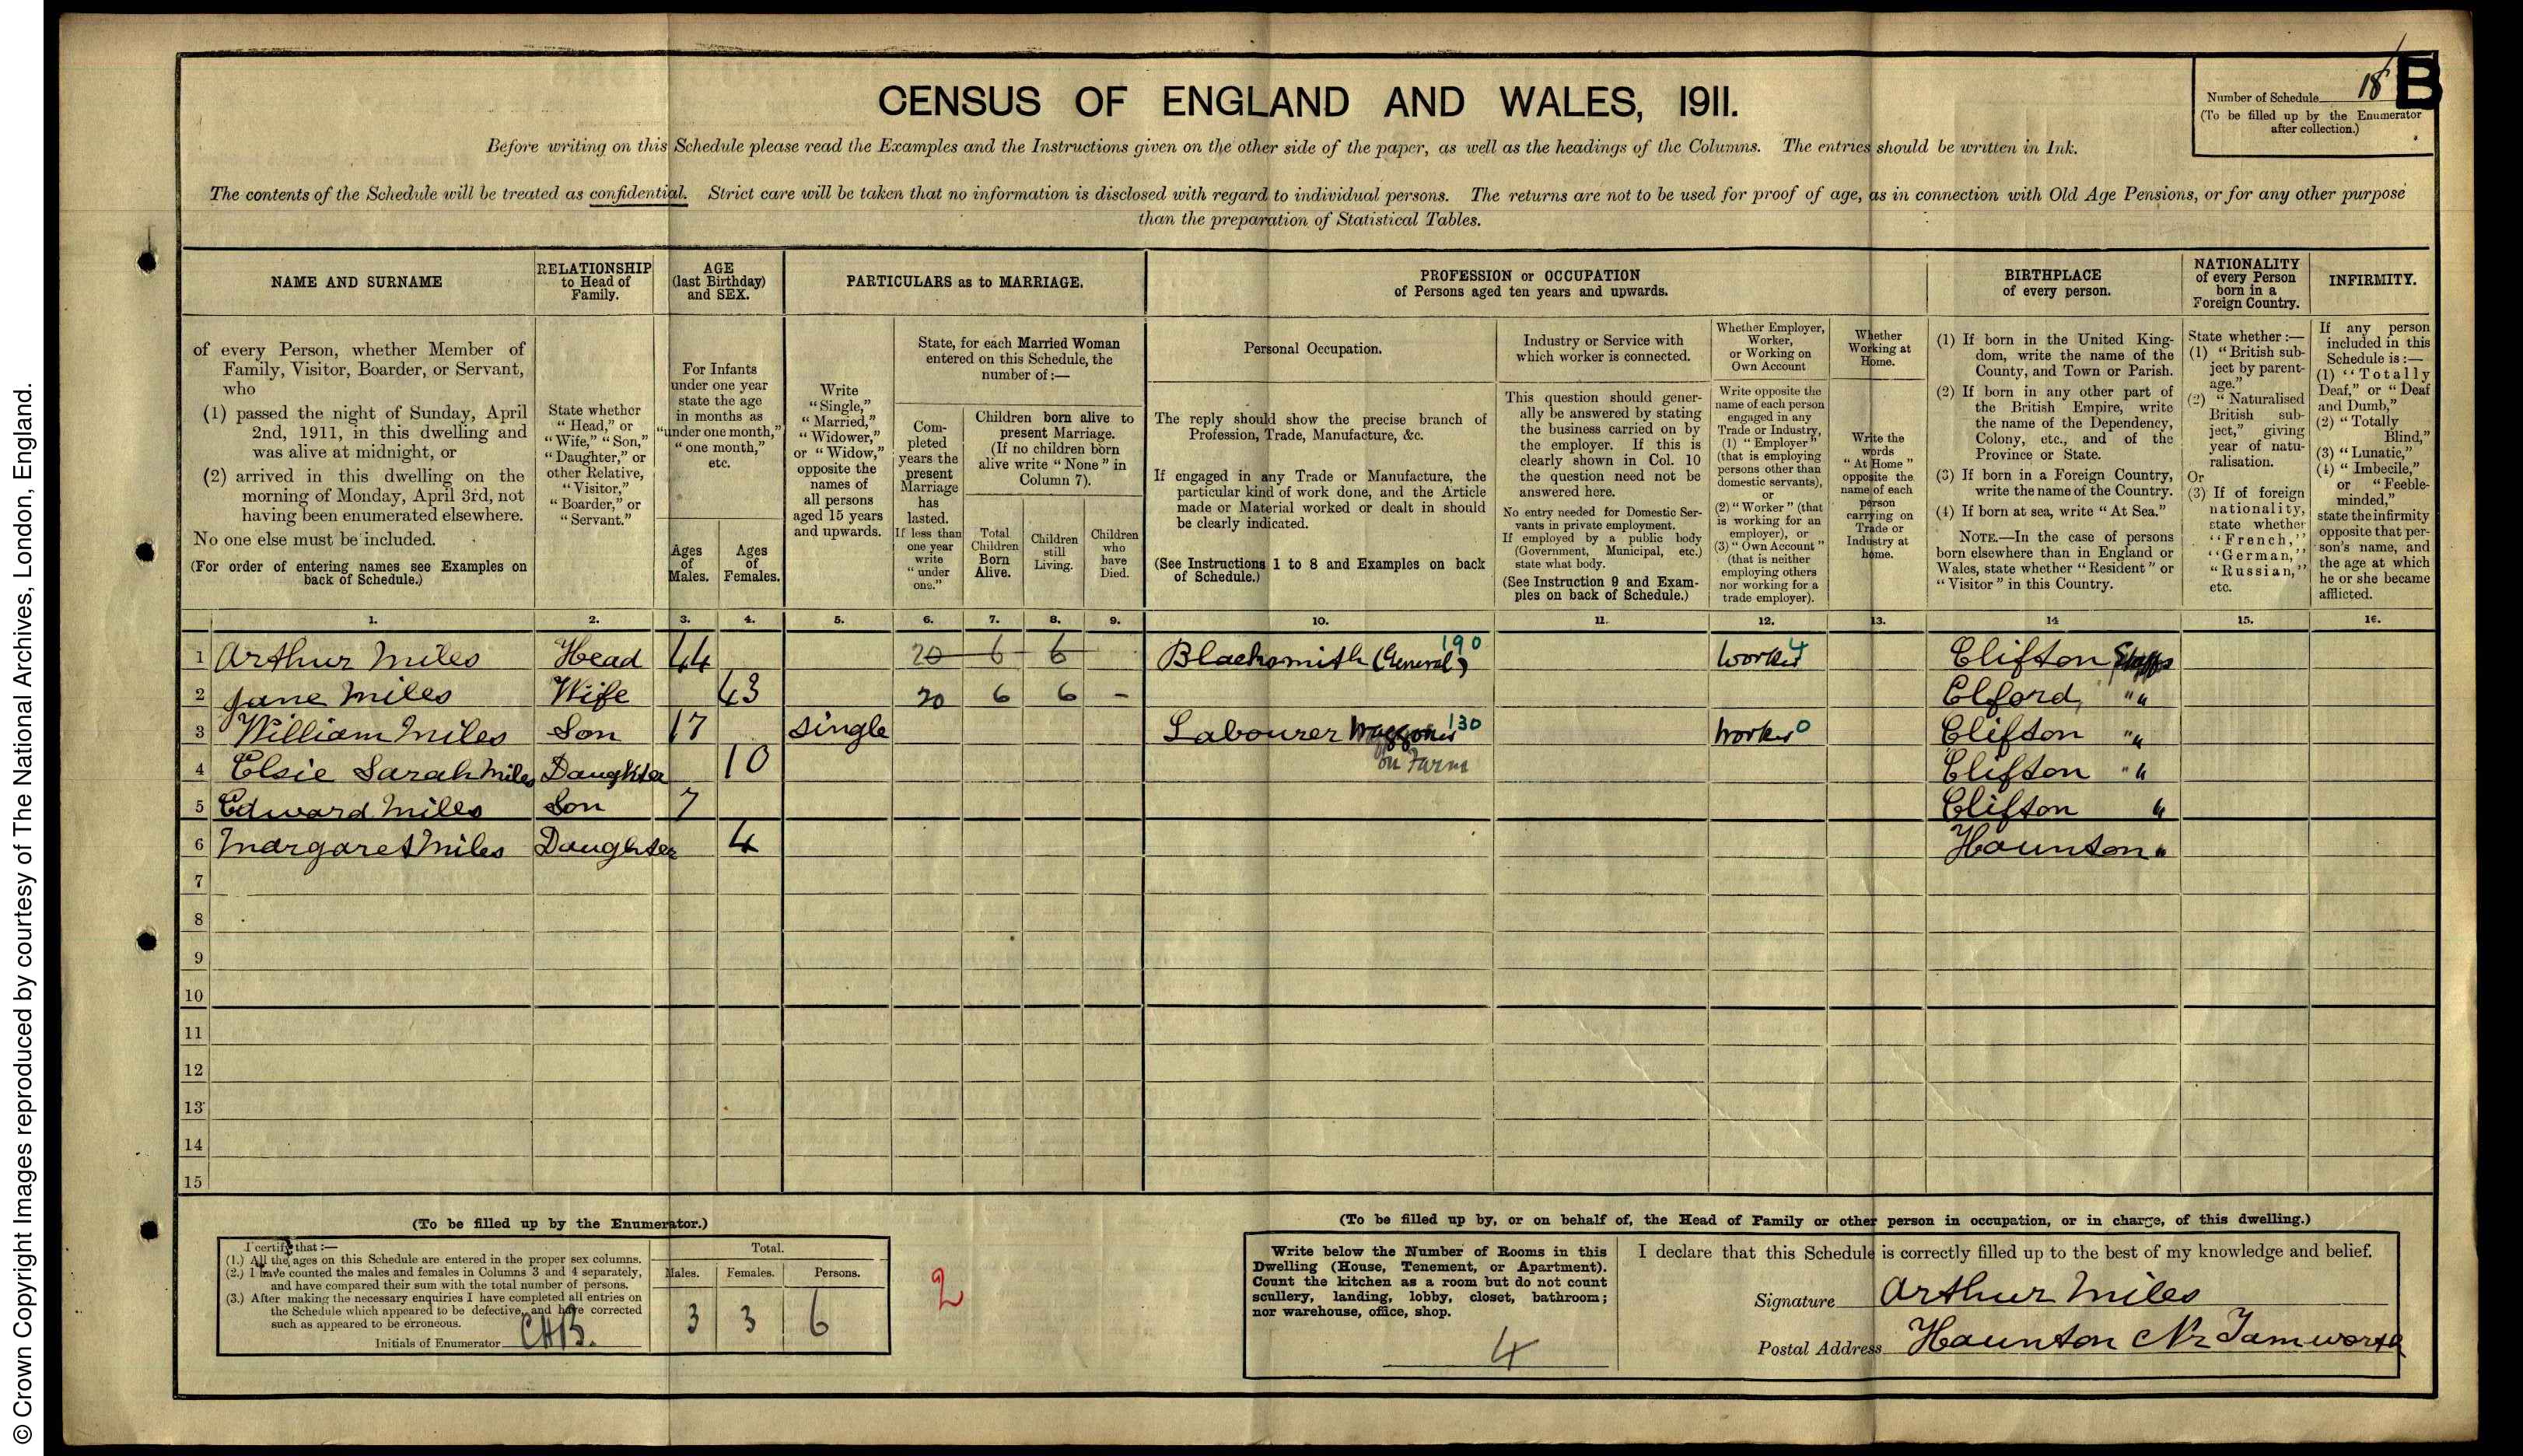 © Crown Copyright Images reproduced by courtesy of The National Archives, London, England.
CENSUS OF ENGLAND AND WALES, 1911.
Number of Schedule 18
(To be filled up by the Enumerator
after collection.)
B
Before writing on this Schedule please read the Examples and the Instructions given on the other side of the paper, as well as the headings of the Columns. The entries should be written in Ink.
The contents of the Schedule will be treated as confidential. Strict care will be taken that no information is disclosed with regard to individual persons. The returns are not to be used for proof of age, as in connection with Old Age Pensions, or for any other purpose
than the preparation of Statistical Tables.
NAME AND SURNAME
of every Person, whether Member of
Family, Visitor, Boarder, or Servant,
who
(1) passed the night of Sunday, April
2nd, 1911, in this dwelling and
was alive at midnight, or
(2) arrived in this dwelling on the
morning of Monday, April 3rd, not
having been enumerated elsewhere.
No one else must be included.
(For order of entering names see Examples on
back of Schedule.)
RELATIONSHIP
to Head of
Family.
State whether
"Head," or
"Wife," "Son,"
"Daughter," or
other Relative,
"Visitor,"
"Boarder," or
"Servant."
AGE
(last Birthday)
and SEX.
For Infants
under one year
state the age
in months as
"under one month,"
"one month,"
etc.
Ages
of
Males.
Ages
of
Females.
PARTICULARS as to MARRIAGE.
Write
"Single,"
"Married,"
"Widower,"
or "Widow,"
opposite the
names of
all persons
aged 15 years
and upwards.
State, for each Married Woman
entered on this Schedule, the
number of :—
Com-
pleted
years the
present
Marriage
has
lasted.
If less than
one year
write
"under
one."
Children born alive to
present Marriage.
(If no children born
alive write "None" in
Column 7).
Total
Children
Born
Alive.
Children
still
Living.
Children
who
have
Died.
PROFESSION or OCCUPATION
of Persons aged ten years and upwards.
Personal Occupation.
The reply should show the precise branch of
Profession, Trade, Manufacture, &c.
If engaged in any Trade or Manufacture, the
particular kind of work done, and the Article
made or Material worked or dealt in should
be clearly indicated.
(See Instructions 1 to 8 and Examples on back
of Schedule.)
Industry or Service with
which worker is connected.
This question should gener-
ally be answered by stating
the business carried on by
the employer. If this is
clearly shown in Col. 10
the question need not be
answered here.
No entry needed for Domestic Ser-
vants in private employment.
If employed by a public body
(Government, Municipal, etc.)
state what body.
(See Instruction 9 and Exam-
ples on back of Schedule.)
Whether Employer,
Worker,
or Working on
Own Account
Write opposite the
name of each person
engaged in any
Trade or Industry,
(1) "Employer"
(that is employing
persons other than
domestic servants),
or
(2) "Worker" (that
is working for an
employer), or
(3) "Own Account"
(that is neither
employing others
nor working for a
trade employer).
Whether
Working at
Home.
Write the
words
"At Home"
opposite the
name of each
person
carrying on
Trade or
Industry at
home.
BIRTHPLACE
of every person.
(1) If born in the United King-
dom, write the name of the
County, and Town or Parish.
(2) If born in any other part of
the British Empire, write
the name of the Dependency,
Colony, etc., and of the
Province or State.
(3) If born in a Foreign Country,
write the name of the Country.
(4) If born at sea, write "At Sea."
NOTE.—In the case of persons
born elsewhere than in England or
Wales, state whether "Resident" or
"Visitor" in this Country.
NATIONALITY
of every Person
born in a
Foreign Country.
State whether :—
(1) "British sub-
ject by parent-
age."
(2) "Naturalised
British sub-
ject," giving
year of natu-
ralisation.
Or
(3) If of foreign
nationality,
state whether
"French,"
"German,"
"Russian,"
etc.
INFIRMITY.
If any person
included in this
Schedule is :—
(1) "Totally
Deaf," or "Deaf
and Dumb,"
(2) "Totally
Blind,"
(3) "Lunatic,"
(4) "Imbecile,"
or "Feeble-
minded,"
state the infirmity
opposite that per-
son's name, and
the age at which
he or she became
afflicted.
1. 2. 3. 4. 5. 6. 7. 8. 9. 10. 11. 12. 13. 14 15. 16.
1 Arthur Miles Head 44 20 6 6 Blacksmith (General) 190 Worker 4 Clifton Staffs
2 Jane Miles Wife 43 20 6 6 – Elford, "
3 William Miles Son 17 Single Labourer Waggoner 130 Worker 0 Clifton "
on Farm
4 Elsie Sarah Miles Daughter 10 Clifton "
5 Edward Miles Son 7 Clifton "
6 Margaret Miles Daughter 4 Haunton "
7
8
9
10
11
12
13
14
15
(To be filled up by the Enumerator.)
I certify that :—
(1.) All the ages on this Schedule are entered in the proper sex columns.
(2.) I have counted the males and females in Columns 3 and 4 separately,
and have compared their sum with the total number of persons.
(3.) After making the necessary enquiries I have completed all entries on
the Schedule which appeared to be defective, and have corrected
such as appeared to be erroneous.
Initials of Enumerator CHB.
Total.
Males. Females. Persons.
3 3 6
2
(To be filled up by, or on behalf of, the Head of Family or other person in occupation, or in charge, of this dwelling.)
Write below the Number of Rooms in this
Dwelling (House, Tenement, or Apartment).
Count the kitchen as a room but do not count
scullery, landing, lobby, closet, bathroom;
nor warehouse, office, shop.
4
I declare that this Schedule is correctly filled up to the best of my knowledge and belief.
Signature Arthur Miles
Postal Address Haunton Nr Tamworth